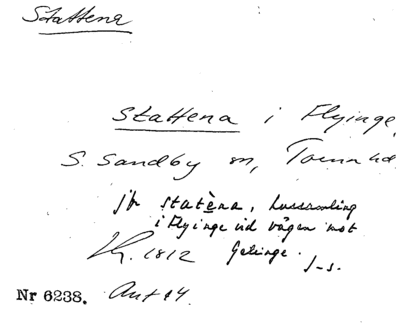 Stattena
Stattena i Flyinge,
S. Sandby sn, Torna hd.
jfr statèna, hussamling
i Flyinge vid vägen mot
Gårdinge. J-s.
1812
Nr 6238. Ant 14.